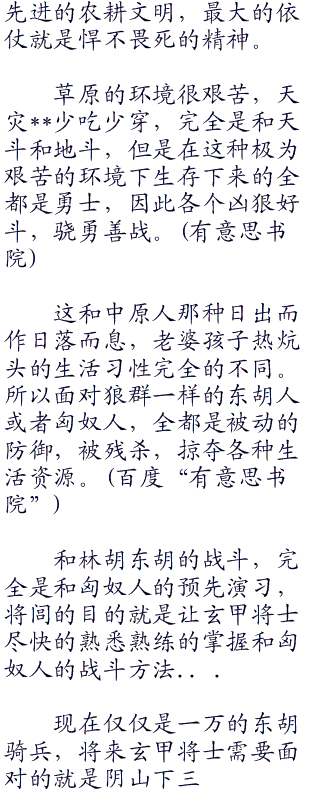 先进的农耕文明，最大的依
仗就是悍不畏死的精神。
草原的环境很艰苦，天
灾**少吃少穿，完全是和天
斗和地斗，但是在这种极为
艰苦的环境下生存下来的全
都是勇士，因此各个凶狠好
斗，骁勇善战。(有意思书
院)
这和中原人那种日出而
作日落而息，老婆孩子热炕
头的生活习性完全的不同。
所以面对狼群一样的东胡人
或者匈奴人，全都是被动的
防御，被残杀，掠夺各种生
活资源。(百度“有意思书
院”)
和林胡东胡的战斗，完
全是和匈奴人的预先演习，
将闾的目的就是让玄甲将士
尽快的熟悉熟练的掌握和匈
奴人的战斗方法...
现在仅仅是一万的东胡
骑兵，将来玄甲将士需要面
对的就是阴山下三